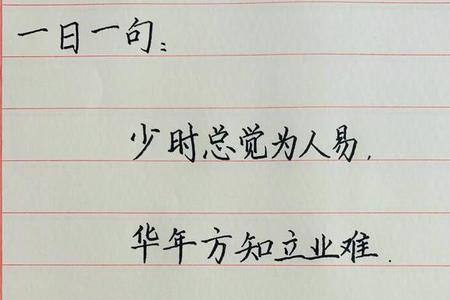 一日一句：
少时总觉为人易，
华年方知立业难.